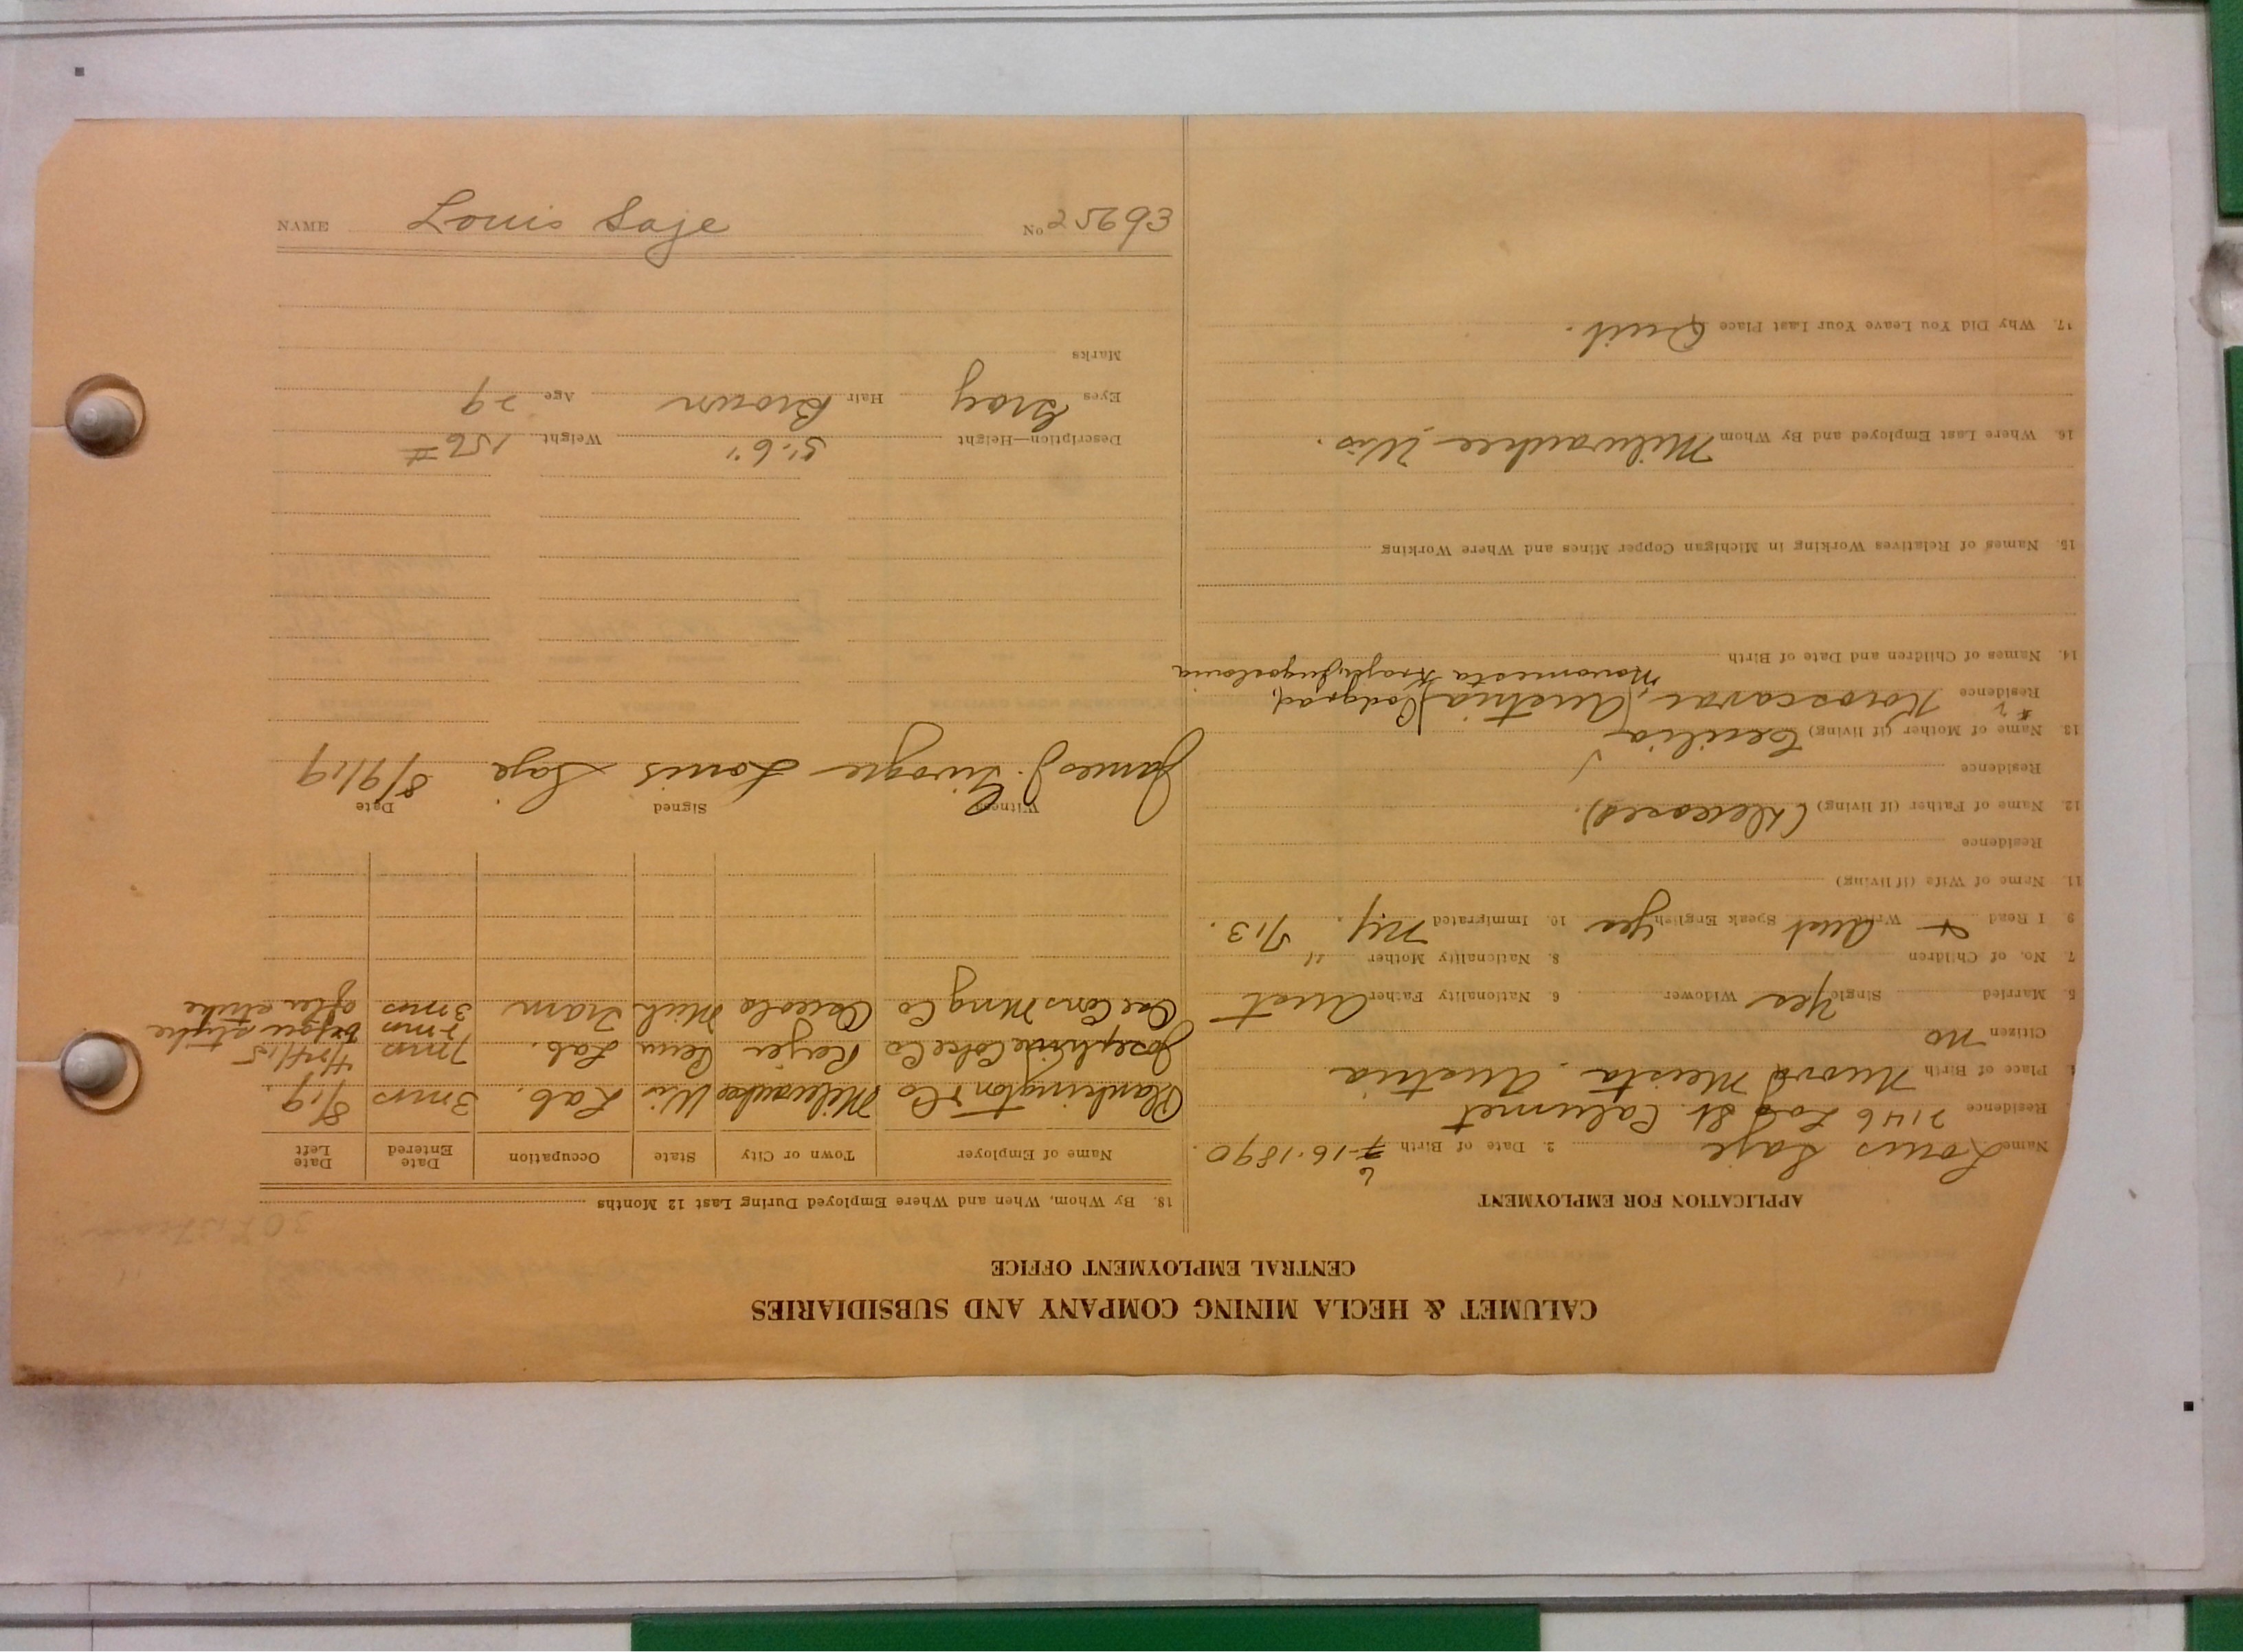 NAME Louis Saje No 25693
CALUMET & HECLA MINING COMPANY AND SUBSIDIARIES
CENTRAL EMPLOYMENT OFFICE
APPLICATION FOR EMPLOYMENT
Name Louis Saje 2. Date of Birth 7-16-1890.
6
Residence 2146 Log St. Calumet
Place of Birth Meista, Austria
Citizen no
5. Married Single Yes Widower 6. Nationality Father Aust
7. No. of Children 8. Nationality Mother "
9. I Read + Write Aust Speak English Yes 10. Immigrated N.Y. 5/13.
11. Name of Wife (if living)
Residence
12. Name of Father (if living) (Deceased).
Residence
13. Name of Mother (if living) Cecilia
Residence Austria
14. Names of Children and Date of Birth
15. Names of Relatives Working in Michigan Copper Mines and Where Working
16. Where Last Employed and By Whom Milwaukee, Wis.
17. Why Did You Leave Your Last Place Quit.
18. By Whom, When and Where Employed During Last 12 Months
Name of Employer Town or City State Occupation Date Entered Date Left
Plankington & Co Milwaukee Wis Lab. 3 mos 8/19.
Josephine Coke Co Penn Lab. 7 mos 4/24/15
7 mos before strike
Osc Cons Mng Co Osceola Mich Tram 3 mos after strike
Witness Signed Date
James J. Louis Saje 8/9/19
Description—Height 5'-6" Weight 156 #
Eyes Gray Hair Brown Age 29
Marks